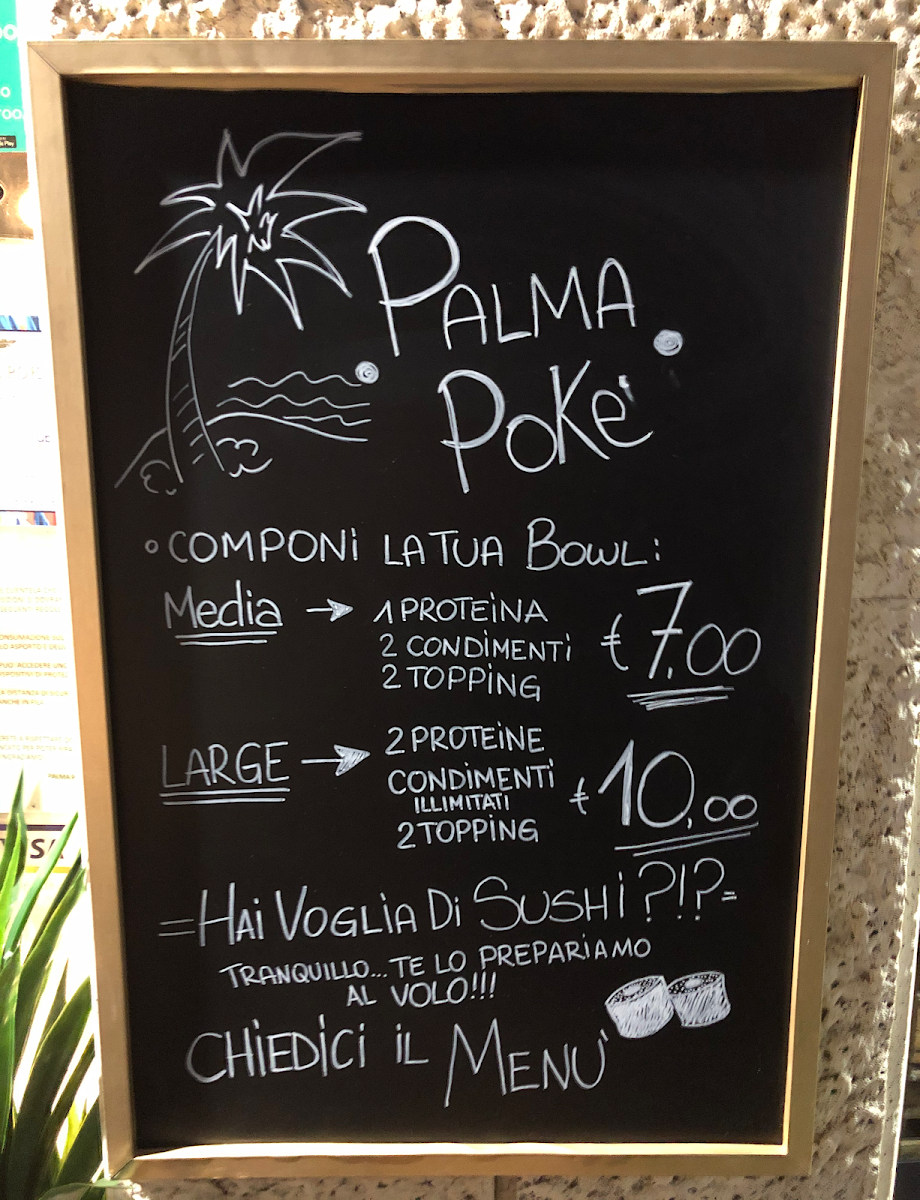 PALMA
POKÈ
COMPONI LA TUA BOWL:
Media → 1 PROTEINA
2 CONDIMENTI
2 TOPPING
€ 7,00
LARGE → 2 PROTEINE
CONDIMENTI
ILLIMITATI
2 TOPPING
€ 10,00
=HAI VOGLIA DI SUSHI?!?=
TRANQUILLO... TE LO PREPARIAMO
AL VOLO!!!
CHIEDICI IL MENÙ